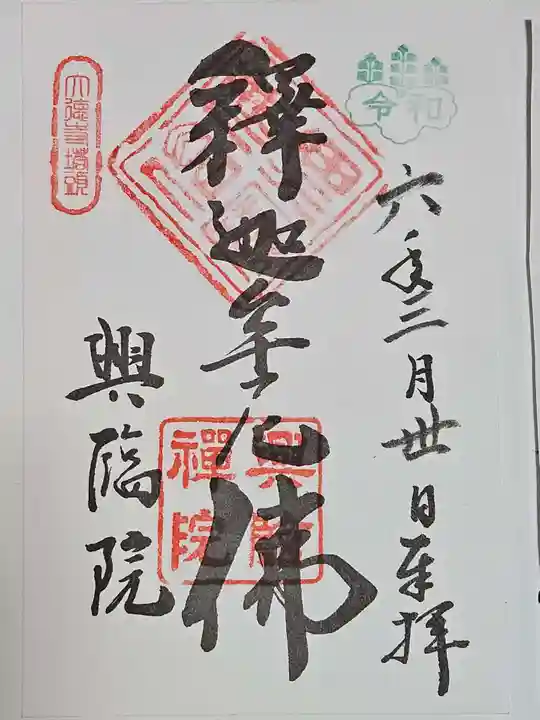 令和
六年三月丗日奉拝
釋迦牟尼佛
大徳寺塔頭
興臨院
興臨禅院